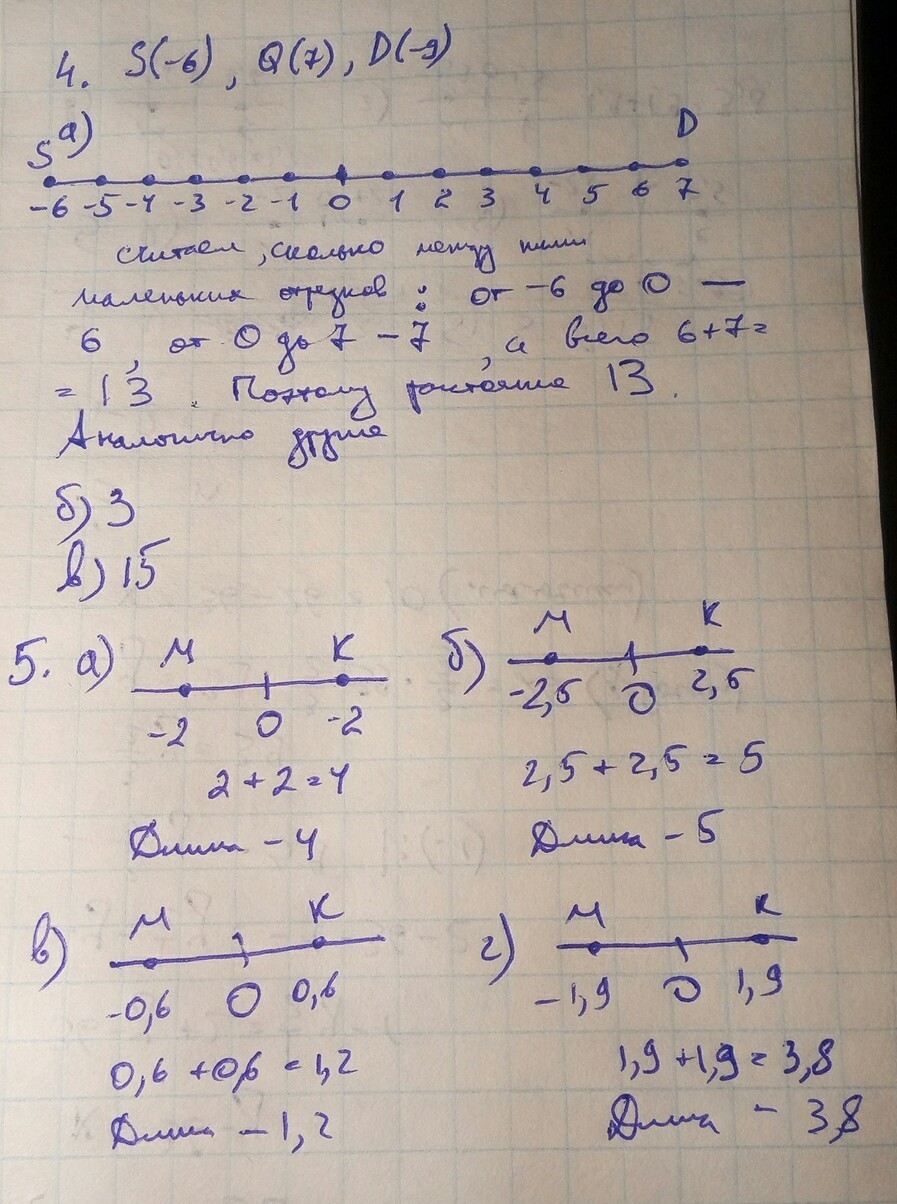 4. S(-6), Q(7), D(-9)
а)
S D
-6 -5 -4 -3 -2 -1 0 1 2 3 4 5 6 7
считаем, сколько между ними
маленьких отрезков: от -6 до 0 —
6, от 0 до 7 - 7, а всего 6+7=
= 13. Поэтому расстояние 13.
Аналогично другие
б) 3
в) 15
5. а) M K б) M K
-2 0 -2 -2,5 0 2,5
2 + 2 = 4 2,5 + 2,5 = 5
Длина - 4 Длина - 5
в) M K г) M K
-0,6 0 0,6 -1,9 0 1,9
0,6 + 0,6 = 1,2 1,9 + 1,9 = 3,8
Длина - 1,2 Длина - 3,8